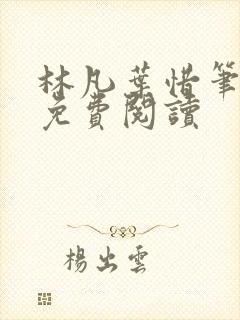 林凡葉惜筆
免費閱讀
楊出雲